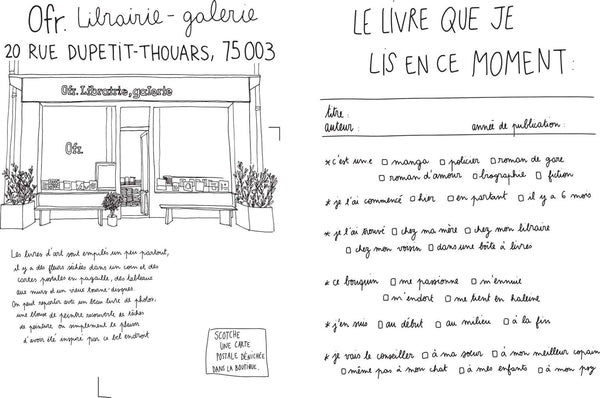 Ofr. Librairie-galerie
20 RUE DUPETIT-THOUARS, 75003
Ofr. Librairie, galerie
Ofr.
Les livres d'art sont empilés un peu partout,
il y a des fleurs séchées dans un coin et des
cartes postales en pagaille, des tableaux
aux murs et un vieux tourne-disques.
On peut repartir avec un beau livre de photos,
une blouse de peintre recouverte de tâches
de peinture ou simplement le plaisir
d'avoir été inspiré par ce bel endroit
SCOTCHE
UNE CARTE
POSTALE DÉNICHÉE
DANS LA BOUTIQUE.
LE LIVRE QUE JE
LIS EN CE MOMENT :
titre :
auteur : année de publication :
* c'est un•e □ manga □ policier □ roman de gare
□ roman d'amour □ biographie □ fiction
* je l'ai commencé □ hier □ en partant □ il y a 6 mois
* je l'ai trouvé □ chez ma mère □ chez mon libraire
□ chez mon voisin □ dans une boîte à livres
* ce bouquin □ me passionne □ m'ennuie
□ m'endort □ me tient en haleine
* j'en suis □ au début □ au milieu □ à la fin
* je vais le conseiller □ à ma sœur □ à mon meilleur copain
□ même pas à mon chat □ à mes enfants □ à mon psy